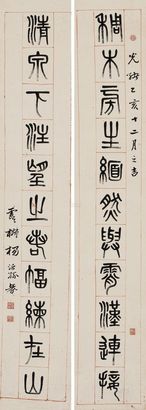 光緒乙亥十二月之吉
稠木旁生緬然與霄漢連接
清泉下注望之若幅練在山
楊沂孫